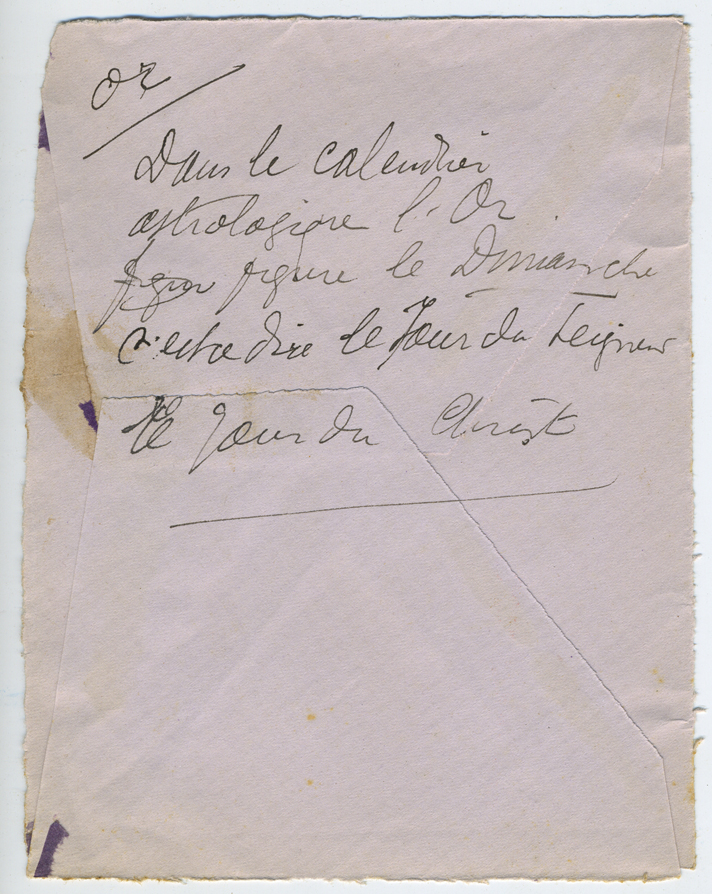 Or
Dans le calendrier
astrologique l'Or
figur figure le Dimanche
c'est a dire le Jour du Seigneur
le Jour du Christ